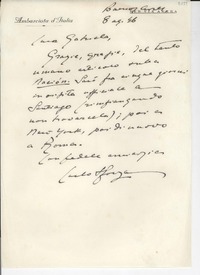 Ambasciata d'Italia
Buenos Aires
8 ag. 46
Cara Gabriela,
Grazie, grazie, del tanto
umano articolo sulla
Nación. Sarò fra cinque giorni
in visita ufficiale a
Santiago (rimpiangendo
non trovarcela); poi en
New York, poi di nuovo
a Roma.
Con fedele amicizia
Carlo Sforza